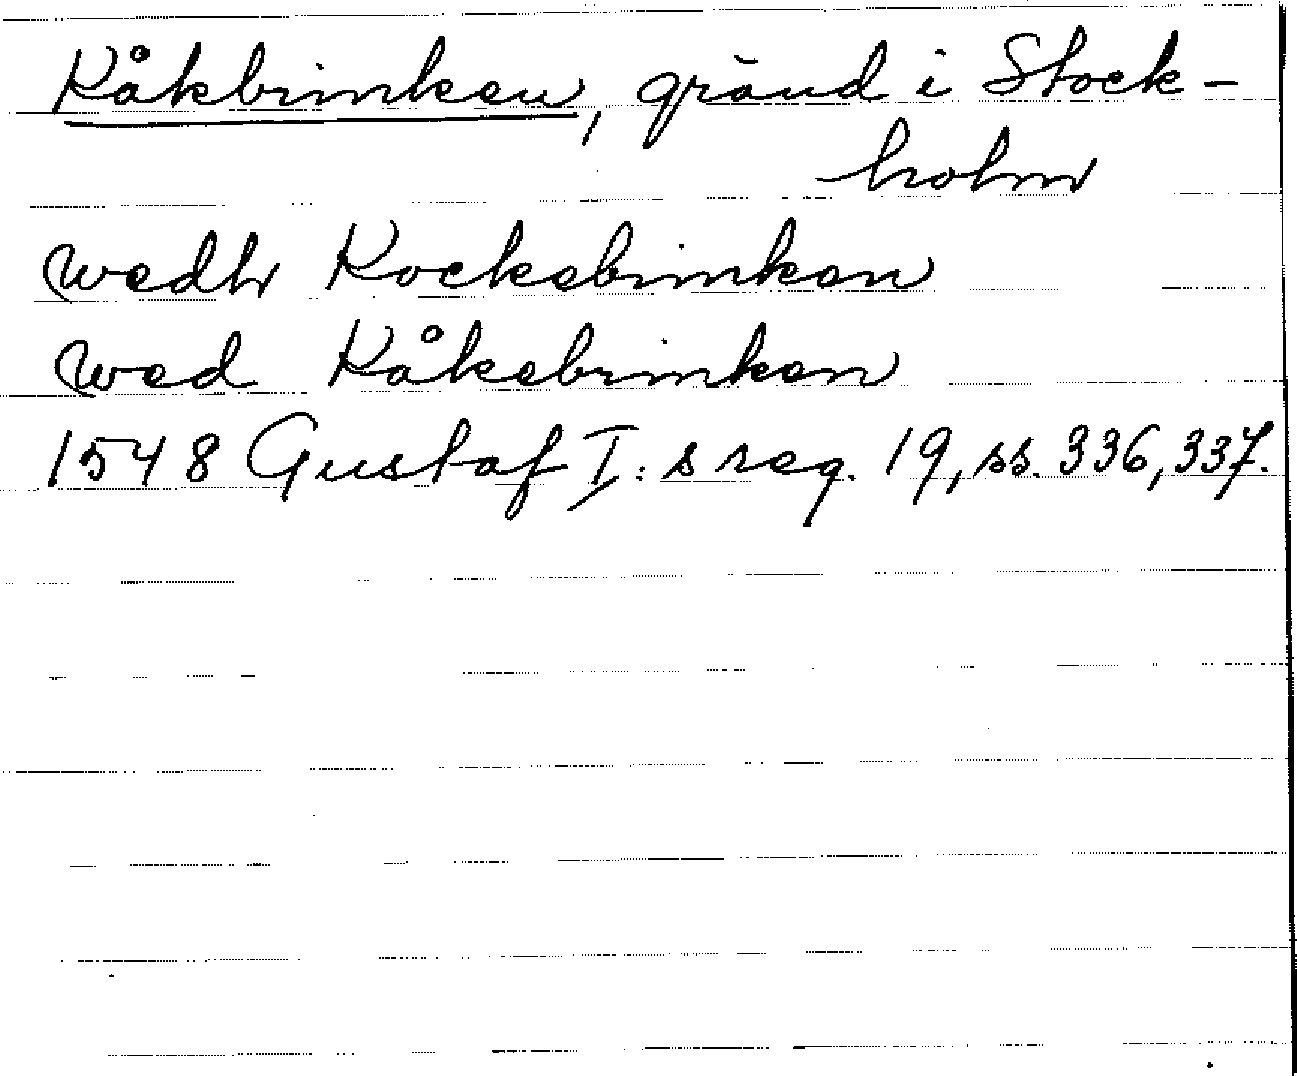 Kåkbrinken, gränd i Stock-
holm
wedh Kockebrinken
wed Kåkebrinken
1548 Gustaf I:s reg. 19, ss. 336, 337.